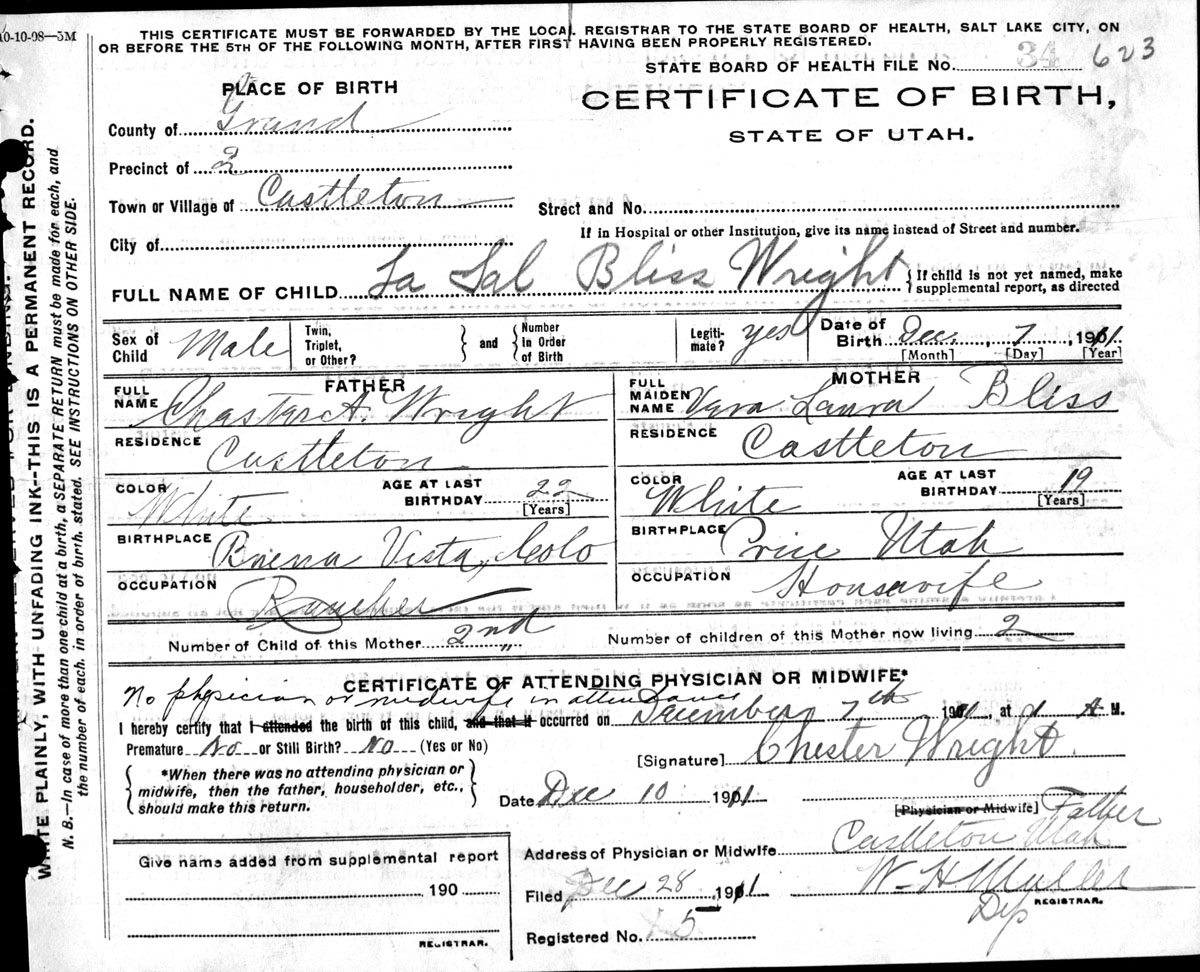 A0-10-98—3M
THIS CERTIFICATE MUST BE FORWARDED BY THE LOCAL REGISTRAR TO THE STATE BOARD OF HEALTH, SALT LAKE CITY, ON
OR BEFORE THE 5TH OF THE FOLLOWING MONTH, AFTER FIRST HAVING BEEN PROPERLY REGISTERED.
STATE BOARD OF HEALTH FILE No. 34 623
PLACE OF BIRTH
CERTIFICATE OF BIRTH,
STATE OF UTAH.
County of Grand
Precinct of 2
Town or Village of Castleton
Street and No.
City of
If in Hospital or other Institution, give its name instead of Street and number.
FULL NAME OF CHILD La Sal Bliss Wright {If child is not yet named, make
supplemental report, as directed
Sex of Child Male Twin, Triplet, or Other? } and { Number In Order of Birth Legiti-mate? yes Date of Birth Dec, 7, 1911
[Month] [Day] [Year]
FATHER MOTHER
FULL NAME Chaster A. Wright FULL MAIDEN NAME Vera Laura Bliss
RESIDENCE Castleton RESIDENCE Castleton
COLOR White AGE AT LAST BIRTHDAY 22 [Years] COLOR White AGE AT LAST BIRTHDAY 19 [Years]
BIRTHPLACE Buena Vista, Colo BIRTHPLACE Price Utah
OCCUPATION Rancher OCCUPATION Housewife
Number of Child of this Mother 2nd Number of children of this Mother now living 2
CERTIFICATE OF ATTENDING PHYSICIAN OR MIDWIFE*
No physician or midwife in attendance
I hereby certify that I attended the birth of this child, and that it occurred on December 7th 1911, at 1 A M.
Premature No or Still Birth? No (Yes or No)
[Signature] Chester Wright
{ *When there was no attending physician or
midwife, then the father, householder, etc.,
should make this return. }
Date Dec 10 1911
[Physician or Midwife] Father
Give name added from supplemental report
Address of Physician or Midwife Castleton Utah
190
Filed Dec 28 1911 W. H. Muller
Dep REGISTRAR.
Registered No. 5
REGISTRAR.
WRITE PLAINLY, WITH UNFADING INK--THIS IS A PERMANENT RECORD.
N. B.—In case of more than one child at a birth, a SEPARATE RETURN must be made for each, and
the number of each, in order of birth, stated. SEE INSTRUCTIONS ON OTHER SIDE.